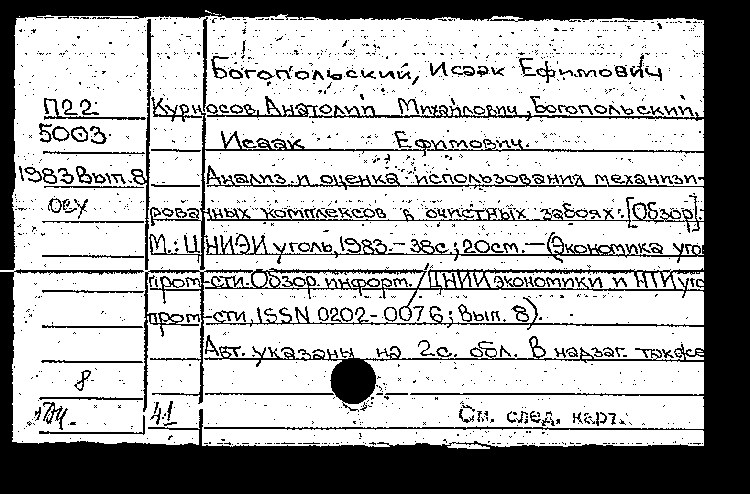 Богопольский, Исаак Ефимович
П22 Курносов, Анатолий Михайлович, Богопольский,
5003 Исаак Ефимович.
1983 Вып. 8 Анализ и оценка использования механизи-
рованных комплексов в очистных забоях: [Обзор].
М.: ЦНИЭИуголь, 1983.- 38с.; 20см.-(Экономика уго
пром-сти. Обзор. информ. / ЦНИИ экономики и НТИ уго
пром-сти, ISSN 0202-0076; Вып. 8).
Авт. указаны на 2с. обл. В надзаг. также
8
41 См. след. карт.